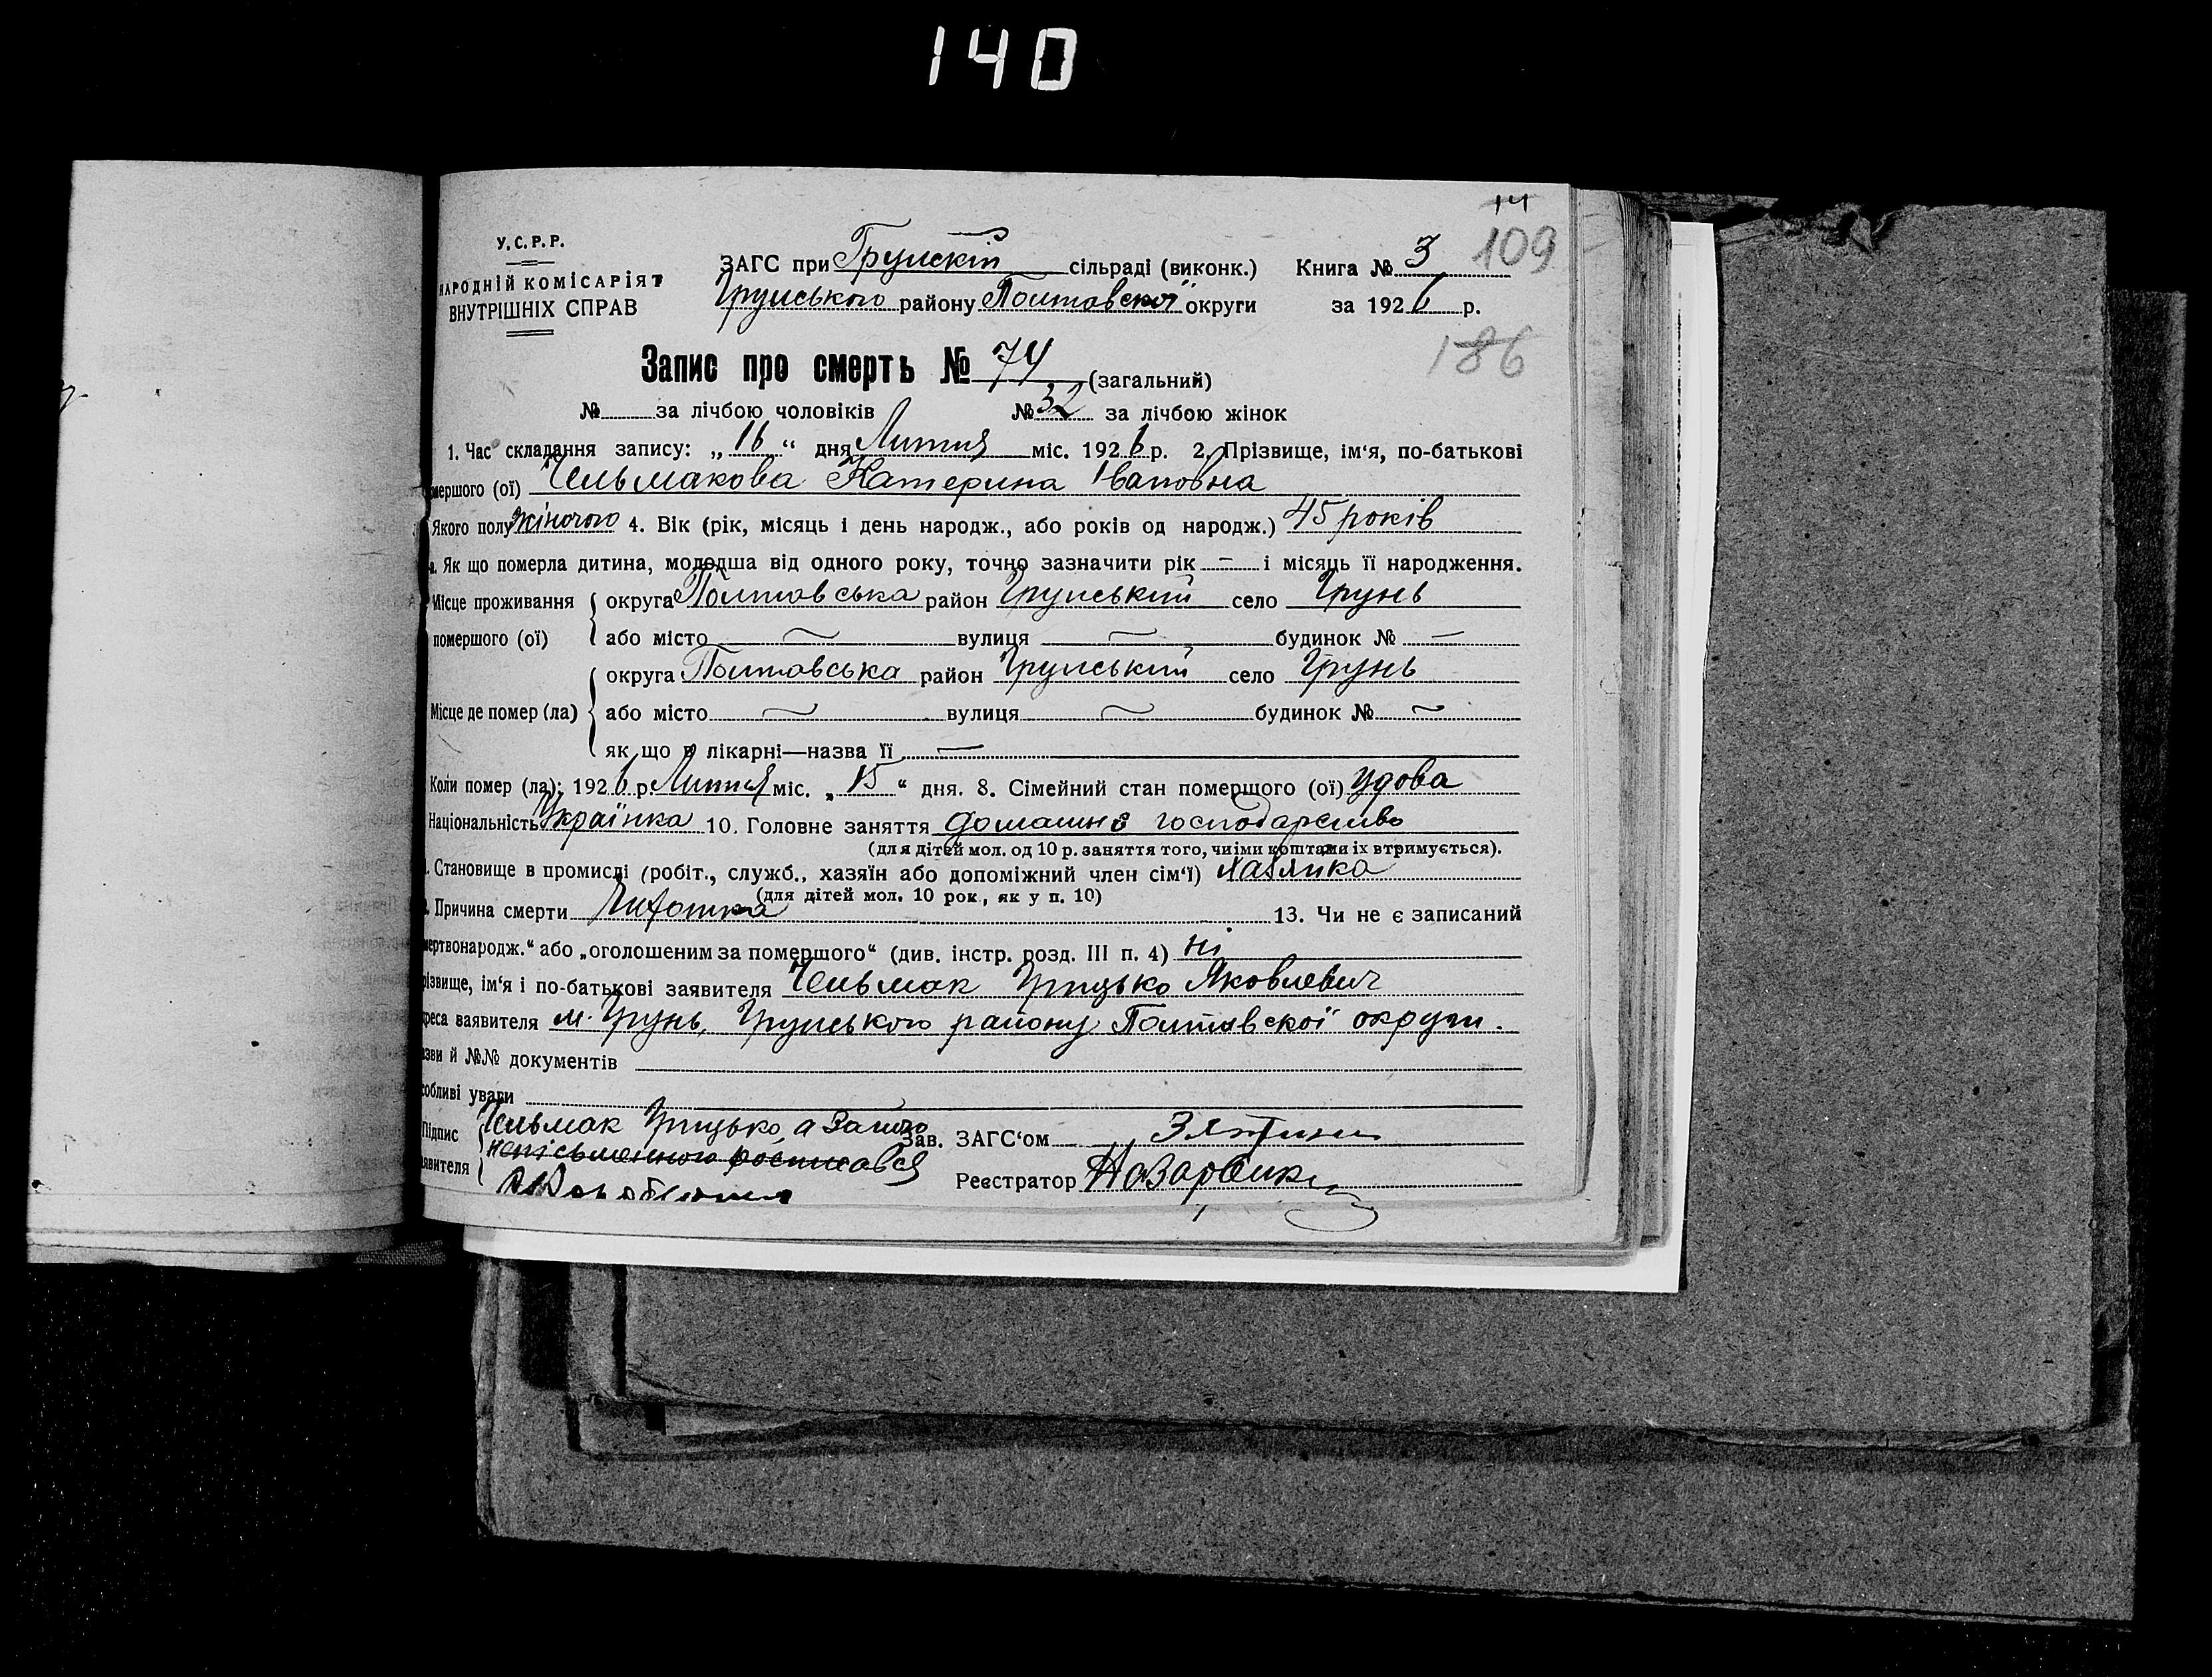 140
14
109
У.С.Р.Р.
НАРОДНІЙ КОМІСАРІЯТ
ВНУТРІШНІХ СПРАВ
ЗАГС при Грунскій сільраді (виконк.) Книга № 3
Грунського району Полтавскої округи за 1926 р.
186
Запис про смерть № 74 (загальний)
№ за лічбою чоловіків № 32 за лічбою жінок
1. Час складання запису: „16“ дня Лютня міс. 1926 р. 2. Прізвище, ім'я, по-батькові
мершого (ої) Чельмакова Катерина Івановна
Якого полу жіночого 4. Вік (рік, місяць і день народж., або років од народж.) 45 років
а. Як що померла дитина, молодша від одного року, точно зазначити рік — і місяць її народження.
Місце проживання округа Полтавська район Грунський село Грунь
помершого (ої) або місто — вулиця — будинок № —
округа Полтавська район Грунський село Грунь
Місце де помер (ла) або місто — вулиця — будинок № —
як що в лікарні—назва її —
Коли помер (ла): 1926 р. Лютня міс. „15“ дня. 8. Сімейний стан помершого (ої) удова
Національність Українка 10. Головне заняття домашнє господарство
(для дітей мол. од 10 р. заняття того, чиїми коштами їх втримується).
. Становище в промислі (робіт., служб., хазяїн або допоміжний член сім'ї) Хазяйка
(для дітей мол. 10 рок., як у п. 10)
. Причина смерти Лихотка 13. Чи не є записаний
мертвонародж.“ або „оголошеним за помершого“ (див. інстр. розд. III п. 4) ні
різвище, ім'я і по-батькові заявителя Чельмак Грицько Яковлевич
дреса заявителя м. Грунь, Грунського району Полтавскої округи.
азви й №№ документів
собливі уваги
Підпис Чельмак Грицько, а за його Зав. ЗАГС'ом
аявителя неписьменного росписався
Реєстратор